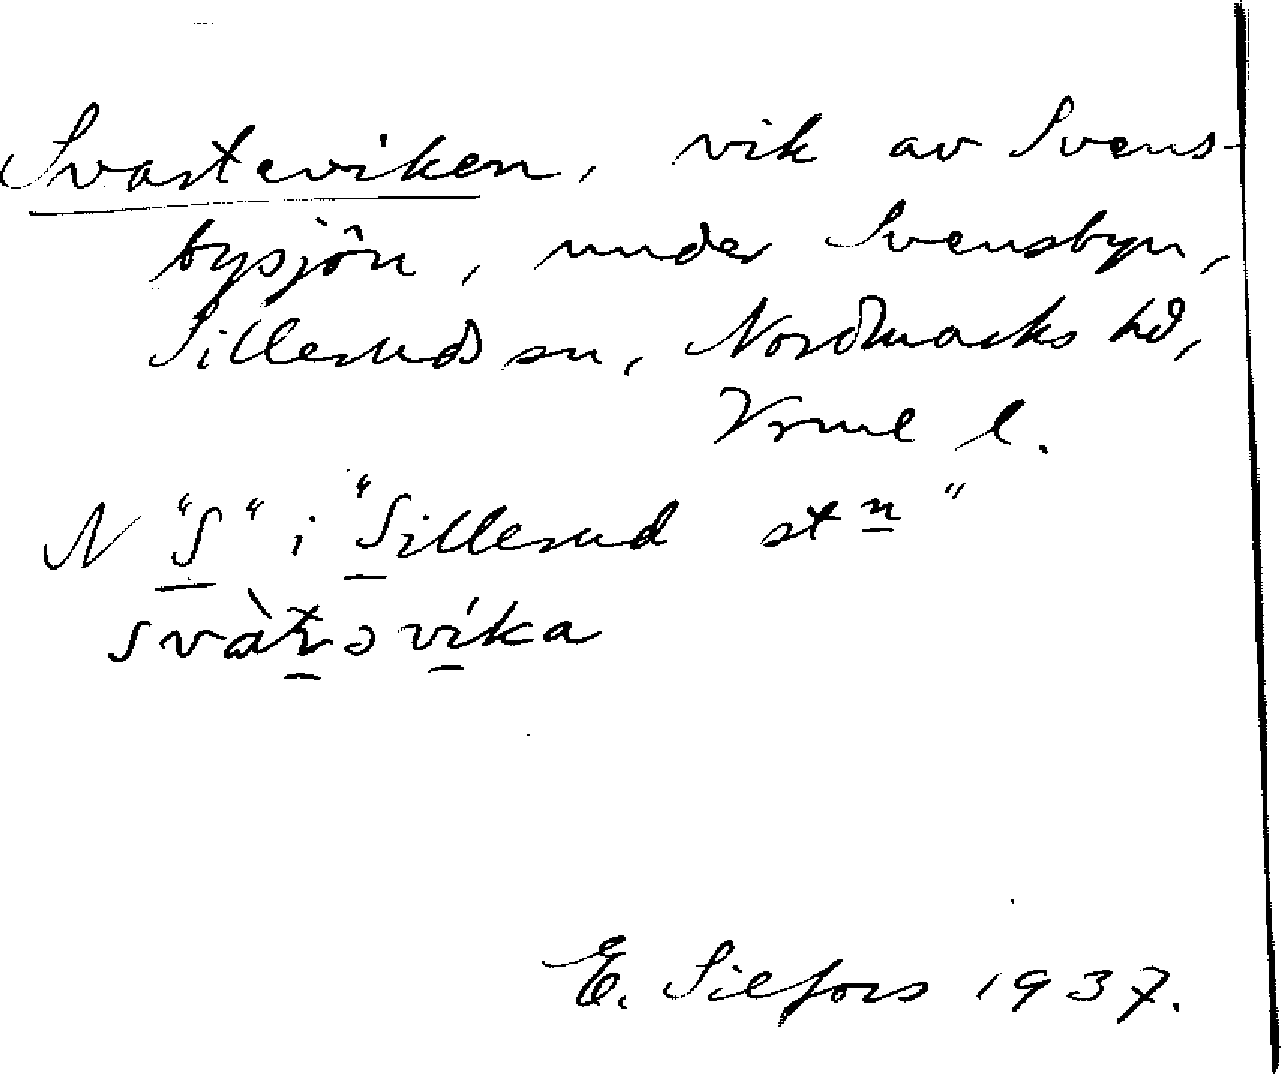 Svarteviken, vik av Svens-
bysjön, under Svensbyn,
Silleruds sn, Nordmarks hd,
Vrml l.
N "S" i "Sillerud stn"
svàʈəvíka
E. Silfors 1937.